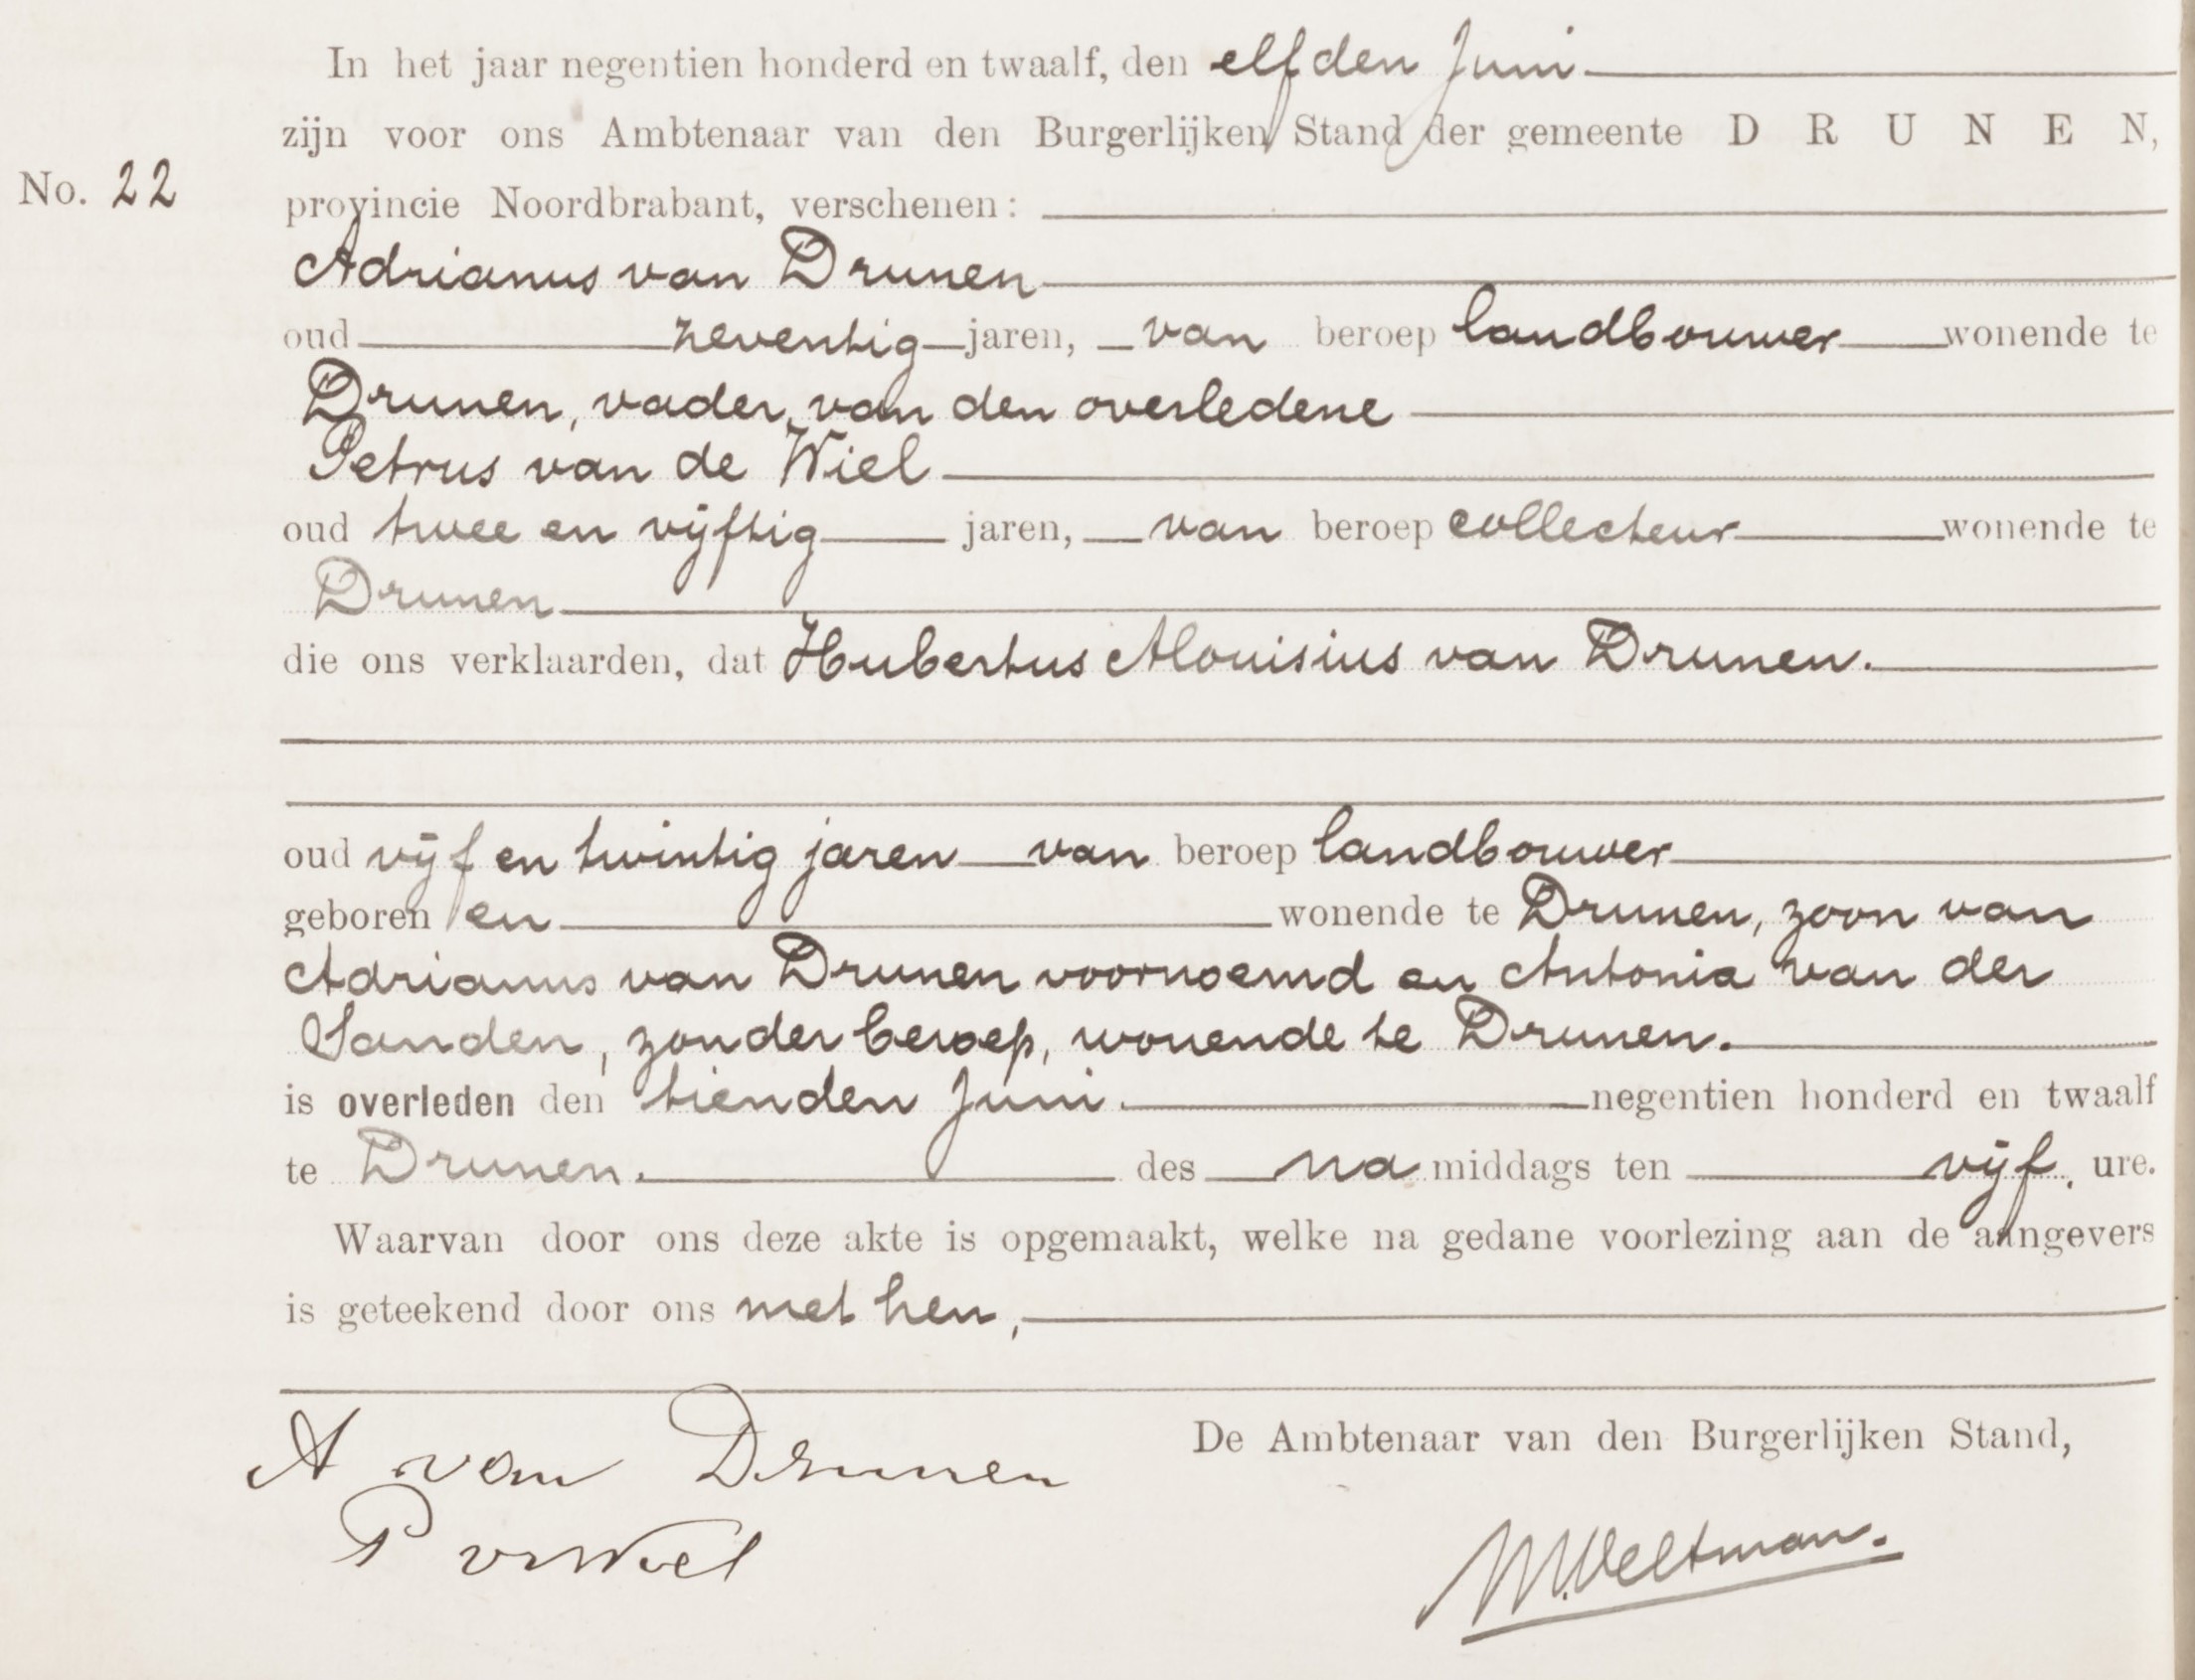 In het jaar negentien honderd en twaalf, den elfden Juni
zijn voor ons Ambtenaar van den Burgerlijken Stand der gemeente D R U N E N,
No. 22
provincie Noordbrabant, verschenen:
Adrianus van Drunen
oud zeventig jaren, van beroep landbouwer wonende te
Drunen, vader van den overledene
Petrus van de Wiel
oud twee en vijftig jaren, van beroep collecteur wonende te
Drunen
die ons verklaarden, dat Hubertus Alouisius van Drunen.
oud vijf en twintig jaren van beroep landbouwer
geboren en wonende te Drunen, zoon van
Adrianus van Drunen voornoemd en Antonia van der
Sanden, zonder beroep, wonende te Drunen.
is overleden den tienden Juni. negentien honderd en twaalf
te Drunen. des na middags ten vijf, ure.
Waarvan door ons deze akte is opgemaakt, welke na gedane voorlezing aan de aangevers
is geteekend door ons met hen,
De Ambtenaar van den Burgerlijken Stand,
A van Drunen
P vd Wiel
M. Veltman.